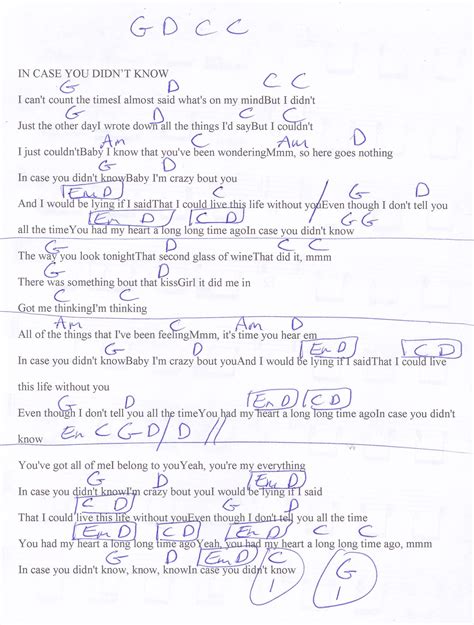 G D C C
IN CASE YOU DIDN'T KNOW
G D C C
I can't count the timesI almost said what's on my mindBut I didn't
G D C C
Just the other dayI wrote down all the things I'd sayBut I couldn't
Am C Am D
I just couldn'tBaby I know that you've been wonderingMmm, so here goes nothing
G D
In case you didn't knowBaby I'm crazy bout you
Em D C D G D
And I would be lying if I saidThat I could live this life without youEven though I don't tell you
Em D C D G G
all the timeYou had my heart a long long time agoIn case you didn't know
G D C C
The way you look tonightThat second glass of wineThat did it, mmm
G D
There was something bout that kissGirl it did me in
C C
Got me thinkingI'm thinking
Am C D
All of the things that I've been feelingMmm, it's time you hear em
G D Em D C D
In case you didn't knowBaby I'm crazy bout youAnd I would be lying if I saidThat I could live
this life without you
G D Em D C D
Even though I don't tell you all the timeYou had my heart a long long time agoIn case you didn't
know Em C G D / D //
You've got all of meI belong to youYeah, you're my everything
G D Em D
In case you didn't knowI'm crazy bout youI would be lying if I said
C D G D
That I could live this life without youEven though I don't tell you all the time
Em D C D Em D C C
You had my heart a long long time agoYeah, you had my heart a long long time ago, mmm
G D Em D C G
In case you didn't know, know, knowIn case you didn't know 1 1